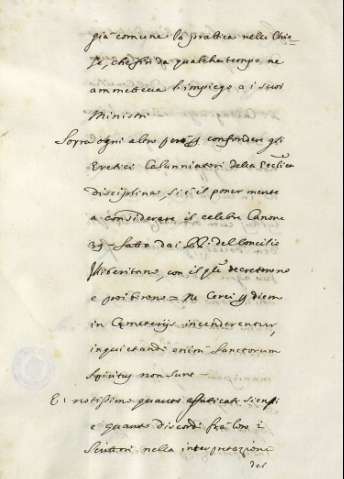 già comune la prattica nelle Chie-
se, che fin da qualche tempo ne
ammetteva l'impiego a i suoi
Ministri
Sopra ogni altro però p confondere gli
Eretici Calunniatori della Eccl.ica
disciplina, si è il poner mente
a considerare il celebre Canone
39 - fatto dai PP. del Concilio
Illiberitano, con il q.le decretorono
e proibirono = Ne Cerei p diem
in Cemeterijs incenderentur,
inquietandi enim Sanctorum
Spiritus non sunt -
E' notissimo quanto affaticati siensi
e quanto discordi frà loro i
Scrittori nella interpretazione
del